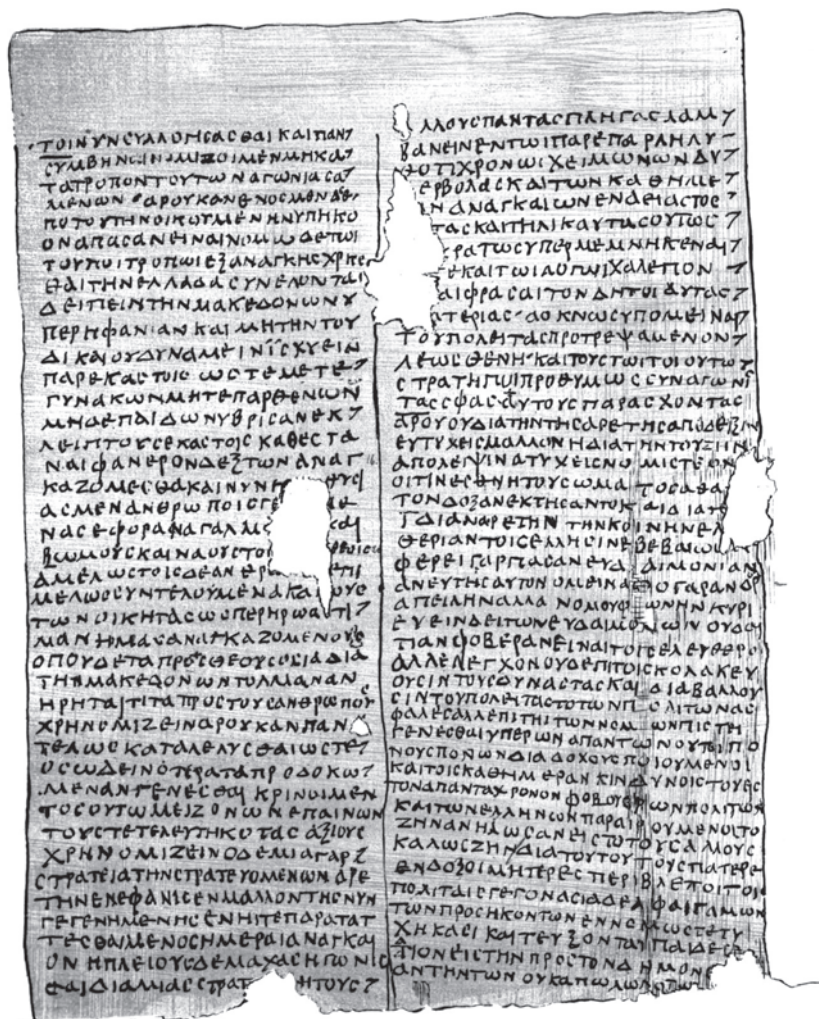 ΤΟΙΝΥΝϹΥΛΛΟΓΙϹΑϹΘΑΙΚΑΙΠΑΝ
ϹΥΜΒΗΝΑΙΝΟΜΙΖΟΙΜΕΝΜΗΚΑ
ΤΑΤΡΟΠΟΝΤΟΥΤΩΝΑΓΩΝΙϹΑ
ΜΕΝΩΝΑΡΟΥΚΑΝΕΝΟϹΜΕΝΔΕ
ΠΟΤΟΥΤΗΝΟΙΚΟΥΜΕΝΗΝΥΠΗΚΟ
ΟΝΑΠΑϹΑΝΕΙΝΑΙΝΟΜΩΔΕΤΩΙ
ΤΟΥΤΟΥΤΡΟΠΩΙΕΞΑΝΑΓΚΗϹΧΡΗϹ
ΘΑΙΤΗΝΕΛΛΑΔΑϹΥΝΕΛΟΝΤΑ
ΔΕΙΠΕΙΝΤΗΝΜΑΚΕΔΟΝΩΝΥ
ΠΕΡΗΦΑΝΙΑΝΚΑΙΜΗΤΗΝΤΟΥ
ΔΙΚΑΙΟΥΔΥΝΑΜΕΙΝΪϹΧΥΕΙΝ
ΠΑΡΕΚΑϹΤΟΙϹΩϹΤΕΜΕΤΕ
ΓΥΝΑΚΩΝΜΗΤΕΠΑΡΘΕΝΩΝ
ΜΗΔΕΠΑΙΔΩΝΥΒΡΙϹΑΝΕΚ
ΛΕΙΠΤΟΥϹΕΚΑϹΤΟΙϹΚΑΘΕϹΤΑ
ΝΑΙΦΑΝΕΡΟΝΔΕΞΤΩΝΑΝΑΓ
ΚΑΖΟΜΕϹΘΑΚΑΙΝΥΝ ΘΥϹΙ
ΑϹΜΕΝΑΝΘΡΩΠΟΙϹΓΕ
ΝΑϹΕΦΟΡΑΝΑΓΑΛΜ ΚΑΙ
ΒΩΜΟΥϹΚΑΙΝΑΟΥϹΤΟΙ ΘΕΟΙϹ
ΑΜΕΛΩϹΤΟΙϹΔΕΑΝΘΡΩ ΕΠΙ
ΜΕΛΩϹϹΥΝΤΕΛΟΥΜΕΝΑΚΑΙΤΟΥϹ
ΤΩΝΟΙΚΗΤΑϹΩϹΠΕΡΗΡΩΑϹΤΙ
ΜΑΝΗΜΑϹΑΝΑΓΚΑΖΟΜΕΝΟΥϹ
ΟΠΟΥΔΕΤΑΠΡΟϹΘΕΟΥϹΟϹΙΑΔΙΑ
ΤΗΝΜΑΚΕΔΟΝΩΝΤΟΛΜΑΝΑΝ
ΗΡΗΤΑΙΤΙΤΑΠΡΟϹΤΟΥϹΑΝΘΡΩΠΟΥϹ
ΧΡΗΝΟΜΙΖΕΙΝΑΡΟΥΚΑΝΠΑΝ
ΤΕΛΩϹΚΑΤΑΛΕΛΥϹΘΑΙΩϹΤΕ
ΟϹΩΔΕΙΝΟΤΕΡΑΤΑΠΡΟΔΟΚΩ
ΜΕΝΑΝΓΕΝΕϹΘΑΙΚΡΙΝΟΙΜΕΝ
ΤΟϹΟΥΤΩΜΕΙΖΟΝΩΝΕΠΑΙΝΩΝ
ΤΟΥϹΤΕΤΕΛΕΥΤΗΚΟΤΑϹΑΞΙΟΥϹ
ΧΡΗΝΟΜΙΖΕΙΝΟΔΕΜΙΑΓΑΡ
ϹΤΡΑΤΕΙΑΤΗΝϹΤΡΑΤΕΥΟΜΕΝΩΝΑΡΕ
ΤΗΝΕΝΕΦΑΝΙϹΕΝΜΑΛΛΟΝΤΗϹΝΥΝ
ΓΕΓΕΝΗΜΕΝΗϹΕΝΗΙΤΕΠΑΡΑΤΑΤ
ΤΕϹΘΑΙΜΕΝΟϹΗΜΕΡΑΙΑΝΑΓΚΑΙ
ΟΝΗΠΛΕΙΟΥϹΔΕΜΑΧΑϹΗΓΩΝΙϹ
ΘΑΙΔΙΑΜΙΑϹϹΤΡΑΤ ΗΤΟΥϹ
ΛΛΟΥϹΠΑΝΤΑϹΠΛΗΓΑϹΛΑΜ
ΒΑΝΕΙΝΕΝΤΩΙΠΑΡΕΠΑΡΛΗΛΥ
ΘΟΤΙΧΡΟΝΩΙΧΕΙΜΩΝΩΝΔΥ
ΕΡΒΟΛΑϹΚΑΙΤΩΝΚΑΘΗΜΕ
ΑΝΑΝΑΓΚΑΙΩΝΕΝΔΕΙΑϹΤΟϹ
ΤΑϹΚΑΙΤΗΛΙΚΑΥΤΑϹΟΥΤΩϹ
ΚΡΑΤΩϹΥΠΕΡΜΕΜΝΗΚΕΝΑΙ
ΤΕΚΑΙΤΩΙΛΟΓΩΙΧΑΛΕΠΟΝ
ΑΙΦΡΑϹΑΙΤΟΝΔΗΤΟΙΑΥΤΑϹ
ΑΤΕΡΙΑϹΑΟΚΝΩϹΥΠΟΜΕΙΝΑΙ
ΤΟΥΠΟΛΕΙΤΑϹΠΡΟΤΡΕΨΑΜΕΝΟΝ
ΛΕΩϹΘΕΝΗΚΑΙΤΟΥϹΤΩΙΤΟΙΟΥΤΩ
ϹΤΡΑΤΗΓΩΙΠΡΟΘΥΜΩϹϹΥΝΑΓΩΝΙ
ΤΑϹϹΦΑϹΑΥΤΟΥϹΠΑΡΑϹΧΟΝΤΑϹ
ΑΡΟΥΟΥΔΙΑΤΗΝΤΗϹΑΡΕΤΗϹΑΠΟΔΕΙΞΙΝ
ΕΥΤΥΧΕΙϹΜΑΛΛΟΝΗΔΙΑΤΗΝΤΟΥΖΗΝ
ΑΠΟΛΕΨΙΝΑΤΥΧΕΙϹΝΟΜΙϹΤΕΟΝ
ΟΙΤΙΝΕϹΘΝΗΤΟΥϹΩΜΑΤΟϹΑΘΑ
ΤΟΝΔΟΞΑΝΕΚΤΗϹΑΝΤΟΚΑΙΔΙΑΤ
ΙΔΙΑΝΑΡΕΤΗΝΤΗΝΚΟΙΝΗΝΕΛ
ΘΕΡΙΑΝΤΟΙϹΕΛΛΗϹΙΝΕΒΕΒΑΙΩ
ΦΕΡΕΙΓΑΡΠΑϹΑΝΕΥΔΑΙΜΟΝΙΑΝ
ΑΝΕΥΤΗϹΑΥΤΟΝΟΜΕΙΝΑΟΥΓΑΡΑΝΔΡ
ΑΠΕΙΛΗΝΑΛΛΑΝΟΜΟΥΦΩΝΗΝΚΥΡΙ
ΕΥΕΙΝΔΕΙΤΩΝΕΥΔΑΙΜΟΝΩΝΟΥΔΑΙ
ΤΙΑΝΦΟΒΕΡΑΝΕΙΝΑΙΤΟΙϹΕΛΕΥΘΕΡΟ
ΑΛΛΕΛΕΓΧΟΝΟΥΔΕΠΙΤΟΙϹΚΟΛΑΚΕΥ
ΟΥϹΙΝΤΟΥϹΔΥΝΑϹΤΑϹΚΑΙΔΙΑΒΑΛΛΟΥ
ϹΙΝΤΟΥΠΟΛΕΙΤΑϹΤΟΤΩΝΠΟΛΙΤΩΝΑϹ
ΦΑΛΕϹΑΛΛΕΠΙΤΗΙΤΩΝΝΟΜΩΝΠΙϹΤΗ
ΓΕΝΕϹΘΑΙΥΠΕΡΩΝΑΠΑΝΤΩΝΟΥΤΟΙΠΟ
ΝΟΥϹΠΟΝΩΝΔΙΑΔΟΧΟΥϹΠΟΙΟΥΜΕΝΟΙ
ΚΑΙΤΟΙϹΚΑΘΗΜΕΡΑΝΚΙΝΔΥΝΟΙϹΤΟΥϹΕϹ
ΤΟΝΑΠΑΝΤΑΧΡΟΝΟΝΦΟΒΟΥϹΤΩΝΠΟΛΙΤΩΝ
ΚΑΙΤΩΝΕΛΛΗΝΩΝΠΑΡΑΙΡΟΥΜΕΝΟΙΤΟ
ΖΗΝΑΝΗΛΩϹΑΝΕΙϹΤΟΤΟΥϹΑΛΛΟΥϹ
ΚΑΛΩϹΖΗΝΔΙΑΤΟΥΤΟΥϹΠΑΤΕΡΕ
ΕΝΔΟΞΟΙΜΗΤΕΡΕϹΠΕΡΙΒΛΕΠΤΟΙΤΟΙϹ
ΠΟΛΙΤΑΙϹΓΕΓΟΝΑϹΙΑΔΕΛΦΑΙΓΑΜΩΝ
ΤΩΝΠΡΟϹΗΚΟΝΤΩΝΕΝΝΟΜΩϹΤΕΤΥ
ΧΗΚΑϹΙΚΑΙΤΕΥΞΟΝΤΑΙΠΑΙΔΕϹ
ΔΙΟΝΕΙϹΤΗΝΠΡΟϹΤΟΝΔΗΜΟΝ
ΑΝΤΗΝΤΩΝΟΥΚΑΠΟΛΩΛΟΤΩ